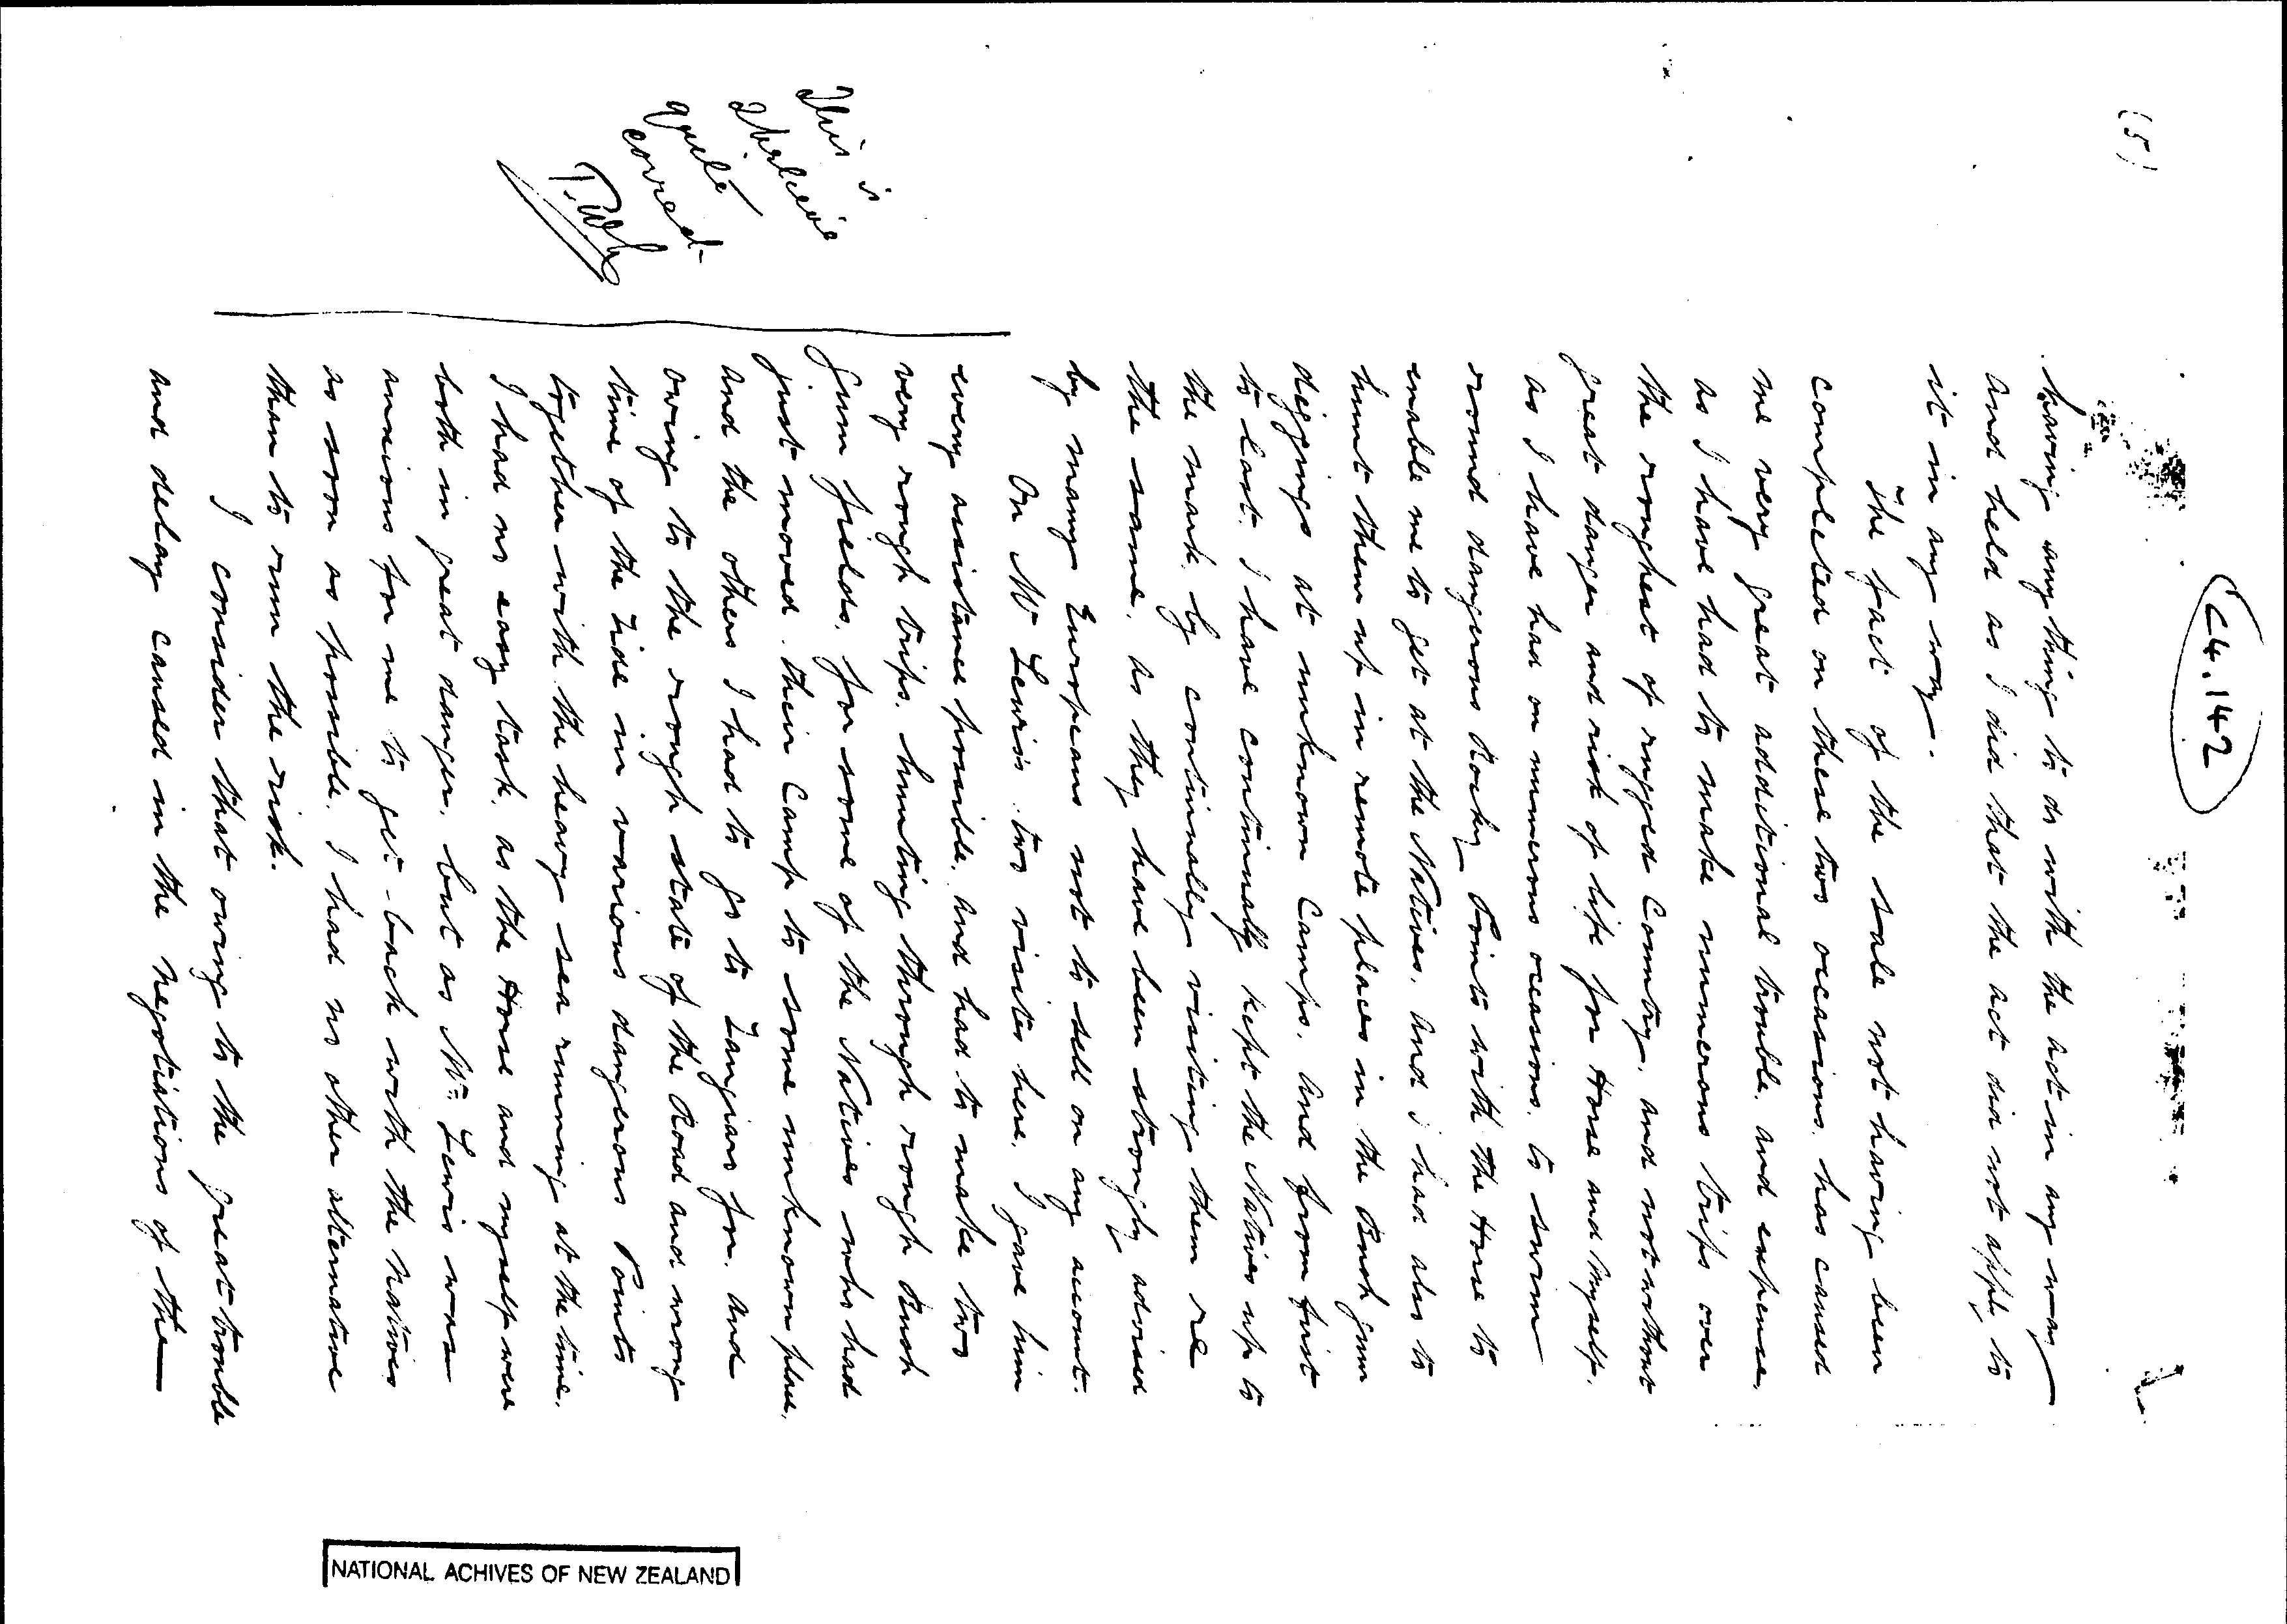 (5)
C4.142
having anything to do with the act in any way
and held as I did that the act did not apply to
it in any way.
The fact of the sale not having been
completed on these two occasions. has caused
me very great additional trouble. and expense.
as I have had to make numerous trips over
the roughest of rugged Country, and not without
great danger and risk of life for Horse and myself.
as I have had on numerous occasions. to swim
round dangerous Rocky Points with the Horse to
enable me to get at the Natives. and I had also to
hunt them up in remote places in the Bush gum
diggings at unknown Camps. and from first
to last. I have continually kept the Natives up to
the mark. by continually visiting them re
the same. as they have been strongly advised
by many Europeans not to sell on any account.
On Mr Lewis. two visits here. I gave him
every assistance possible. and had to make two
very rough trips. hunting through rough Bush
Gum fields. for some of the Natives who had
just moved. their Camp to some unknown place.
and the others I had to go to Zangiaro for. and
owing to the rough state of the Road and wrong
time of the Tide in various dangerous Points
together with the heavy sea running at the time.
I had no easy task. as the Horse and myself were
both in great danger. but as Mr. Lewis was
anxious for me to get back with the natives
as soon as possible. I had no other alternative
than to run the risk.
I consider that owing to the great trouble
and delay caused in the negotiations of the
This is
I believe
quite
correct
NATIONAL ACHIVES OF NEW ZEALAND